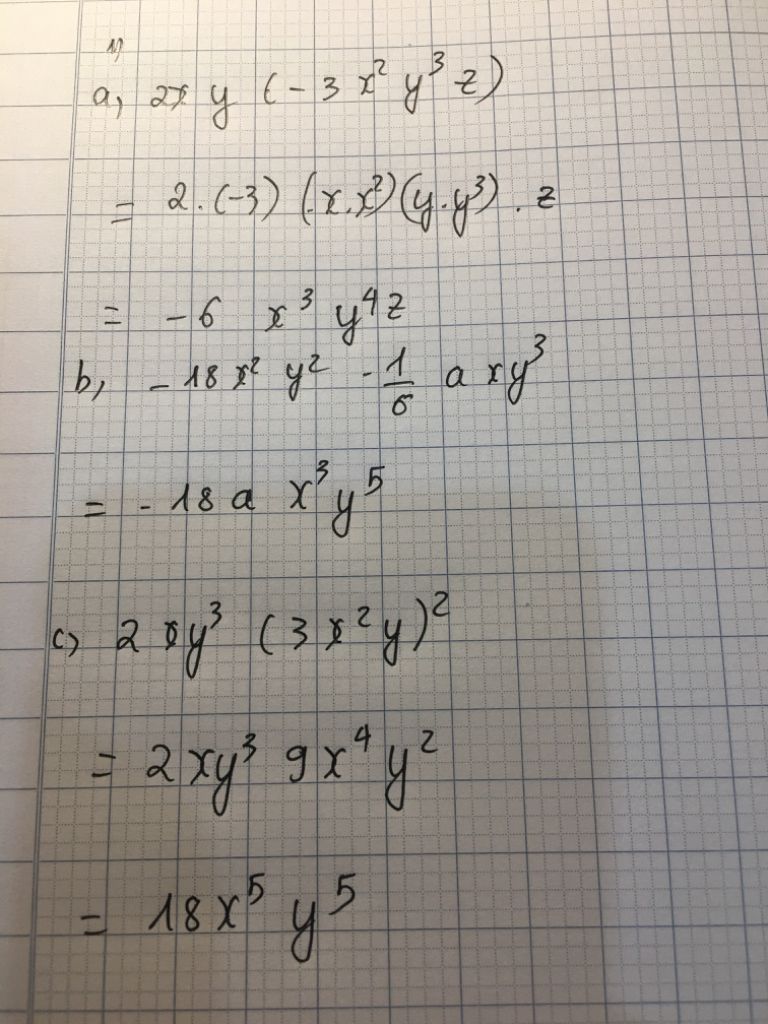 1)
a, 2x y (-3 x² y³ z)
= 2.(-3) (x.x²)(y.y³) . z
= -6 x³ y⁴ z
b, -18 x² y² - 1/6 a xy³
= -18 a x³ y⁵
c) 2 xy³ (3 x² y)²
= 2 xy³ 9x⁴ y²
= 18x⁵ y⁵